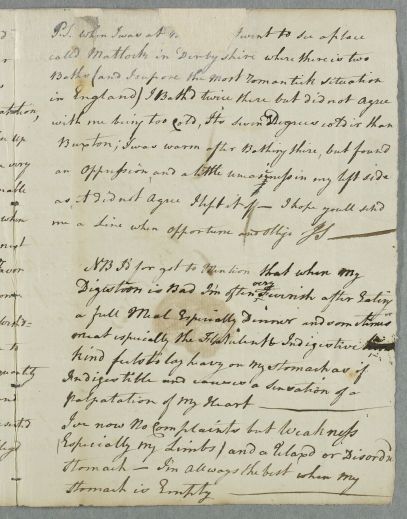 P.S. when I was at I went to see a place
calld Matlock in Derbyshire where there is two
Baths (and I supose the most romantick situation
in England) I Bathd twice there but did not agree
with me being too Cold, Its seven Degrees colder than
Buxton; I was warm after Bathing there, but found
an Oppression, and a little uneasiness in my left side
as it did not Agree I left it off — I hope you'll send
me a Line when opportune and oblige
NB I forgot to mention that when my
Digestion is Bad I'm often very Feverish after Eating
a full Meal Especially Dinner and sometimes
meat especially the Flatulent & Indigestive
kind feels to lay heavy on my Stomach as if
Indigestible and causes a Sensation of a
Palpatation of my Heart
I've now No Complaints but Weakness
(Especially my Limbs) and a Relaxd or Disordd
Stomach — I'm allways the best when my
Stomach is Empty